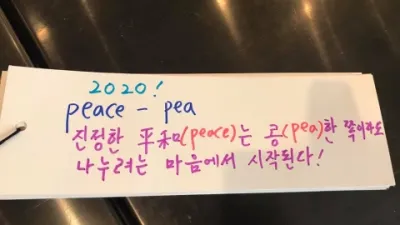 2020!
peace - pea
진정한 平和(peace)는 콩(pea)한 쪽이라도
나누려는 마음에서 시작된다!